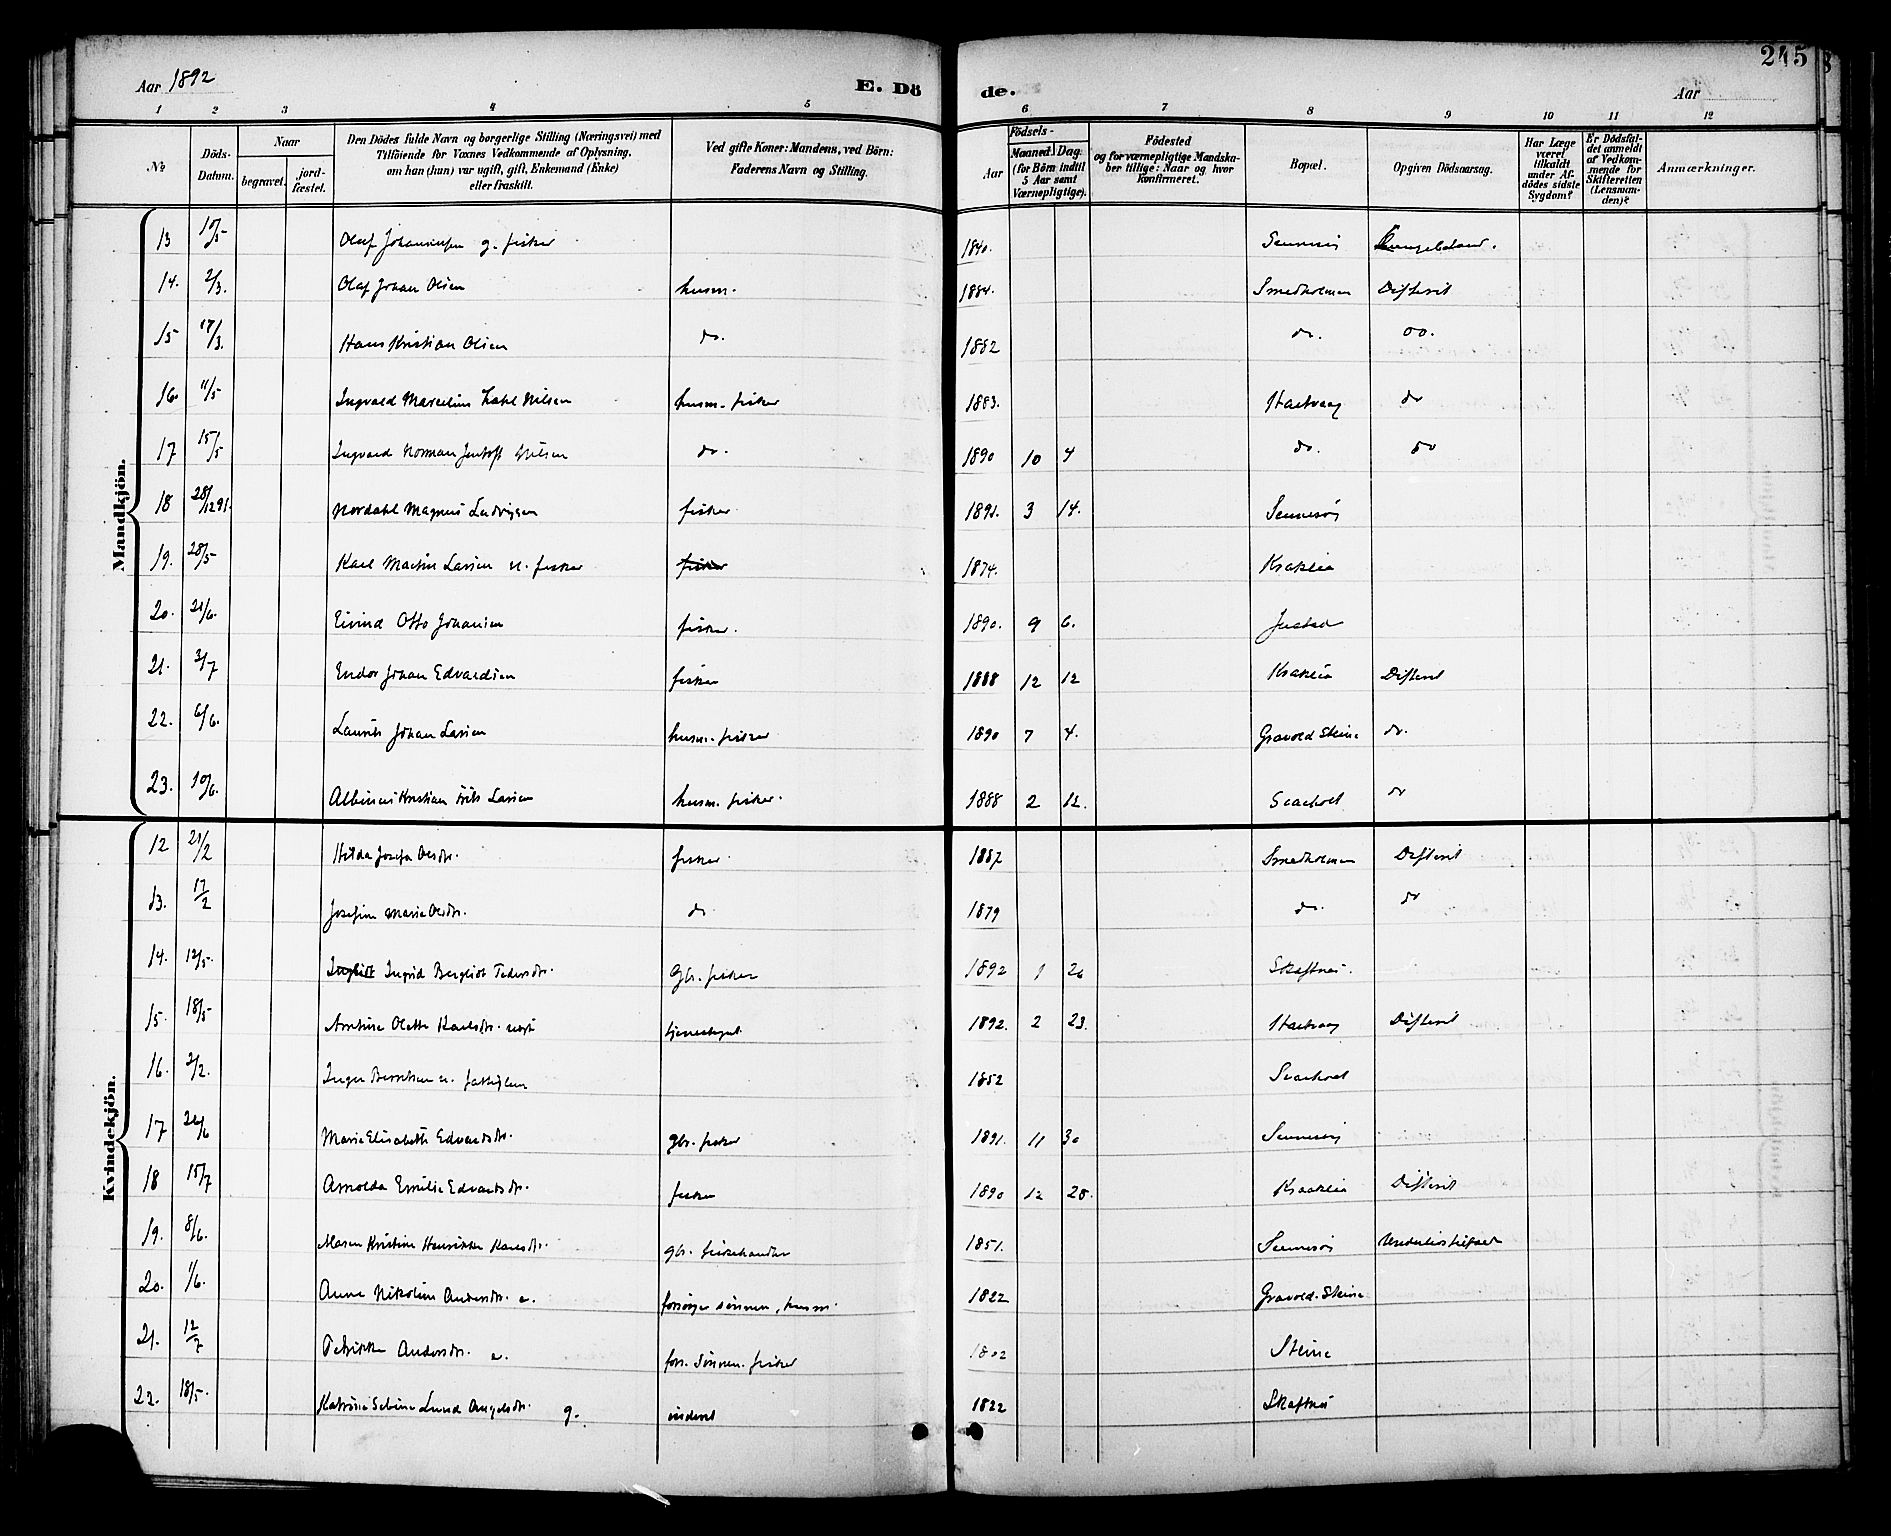 Aar 1892
E. Dö de.
Aar
245
1 2 3 4 5 6 7 8 9 10 11 12
No.
Döds-Datum.
Naar
begravet.
jord-fæstet.
Den Dödes fulde Navn og borgerlige Stilling (Næringsvei) med
Tilföiende for Voxnes Vedkommende af Oplysning,
om han (hun) var ugift, gift, Enkemand (Enke)
eller fraskilt.
Ved gifte Koner: Mandens, ved Börn:
Faderens Navn og Stilling.
Födsels-
Aar
Maaned. Dag.
(for Börn indtil
5 Aar samt
Værnepligtige).
Födested
og for værnepligtige Mandska-
ber tillige: Naar og hvor
konfirmeret.
Bopæl.
Opgiven Dödsaarsag.
Har Læge
været
tilkaldt
under Af-
dödes sidste
Sygdom?
Er Dödsfal-
det anmeldt
af Vedkom-
mende for
Skifteretten
(Lensman-
den)?
Anmærkninger.
Mandkjön.
13 10/5 Olaf Johannessen g. fisker 1840.
14. 2/3. Olaf Johan Olsen husm. 1884. Smedholmen Difterit
15 17/3. Hans Kristian Olsen do. 1882 do. do.
16. 11/5 Ingvald Marcelius Nilsen husm. fisker 1883. do
17 15/5 Ingvald Norman Jentoft Nilsen do. 1890 10 4 do. do
18 28/12 91. Nordahl Magnus Ludvigsen fisker 1891. 3 14.
19. 28/5 Karl Martin Larsen u. fisker fisker 1874.
20. 21/6. Eivind Otto Johansen fisker. 1890. 9 6. Justad
21. 3/7 Endor Johan Edvardsen fisker 1888 12 12 Difterit
22. 6/6. Laurits Johan Larsen husm. fisker 1890 7 4. Gravold Steine do.
23. 10/6. Albinus Kristian Larsen husm. fisker. 1888 2 12. do
Kvindekjön.
12 21/2 Hilda Josefa Olsdtr. fisker 1887 Smedholmen Difterit
13. 17/2 Josefine Marie Olsdtr. do 1879 do. do
14. 12/5. Ingrid Bergliot Pedersdtr. gbr. fisker 1892 1 26 Skaftnes.
15. 18/5 Olette Karlsdtr. 1892. 2 23. Difterit
16. 2/2. Inger Berntsen u. 1852
17 26/6 Marie Elisabeth Edvardsdtr. gbr. fisker 1891. 11 30
18 15/7 Arnolda Emilie Edvardsdtr. fisker 1890 12 28. Difterit
19. 8/6. Maren Kristine Henrikke Karlsdtr. gbr. fiskehandler 1851.
20. 1/6. Anne Nikoline Andersdtr. e. forsørges sönnen, husm. 1822 Gravold. Steine
21. 12/7 Petrikke Andersdtr. e. fors. Sönnen. fisker 1802 Steine
22. 18/5. Lund g. inderst 1822 Skaftnes